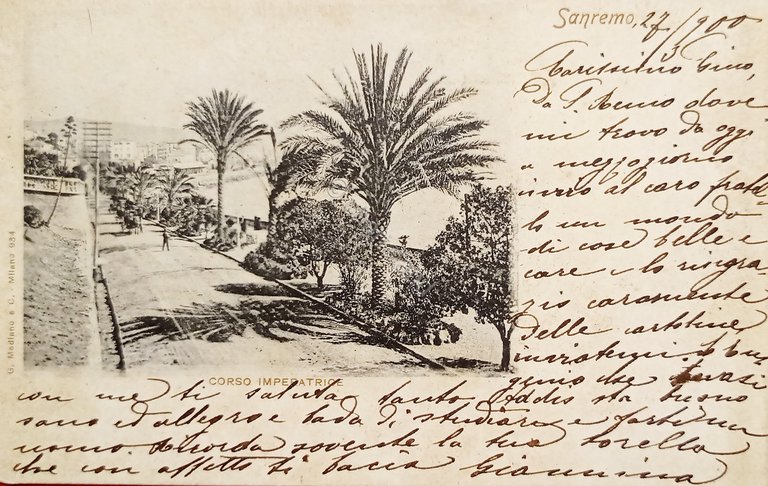 Sanremo, 27/3/900
Carissimo Gino,
Da S. Remo dove
mi trovo da oggi
a mezzogiorno
invio al caro fratel
lo un mondo
di cose belle e
care e lo ringra
zio caramente
delle cartoline
inviatemi.
con me ti saluta tanto. Addio sta buono
sano ed allegro e bada di studiare e farti un
uomo. Ricorda sovente la tua sorella
che con affetto ti bacia Giannina
CORSO IMPERATRICE
G. Modiano e C. Milano 934